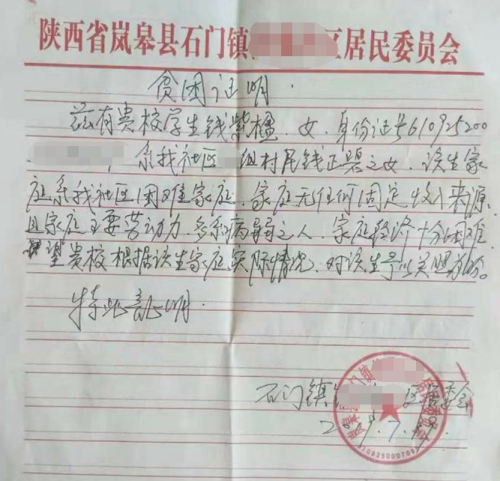 陕西省岚皋县石门镇 区居民委员会
贫困证明
兹有贵校学生钱紫橦,女,身份证号610925200
,系我社区 组村民钱正碧之女,该生家
庭系我社区困难家庭,家庭无任何固定收入来源
且家庭主要劳动力,多系病弱之人,家庭经济十分困难
望贵校根据该生家庭实际情况,对该生予以关照
特此证明.
石门镇 区居委会